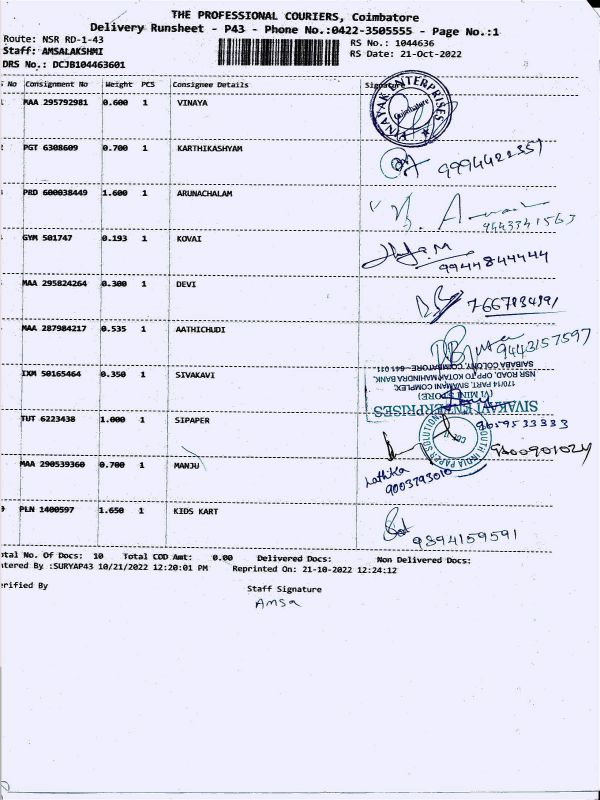 THE PROFESSIONAL COURIERS, Coimbatore
Delivery Runsheet - P43 - Phone No.:0422-3505555 - Page No.:1
Route: NSR RD-1-43
RS No.: 1044636
Staff: AMSALAKSHMI
RS Date: 21-Oct-2022
DRS No.: DCJB104463601
No Consignment No Weight PCS Consignee Details Signature
MAA 295792981 0.600 1 VINAYA
VINAYAK ENTERPRISES
Coimbatore
PGT 6308609 0.700 1 KARTHIKASHYAM
9994422351
PRD 600038449 1.600 1 ARUNACHALAM
9443341563
GYM 501747 0.193 1 KOVAI
9944844444
MAA 295824264 0.300 1 DEVI
MAA 287984217 0.535 1 AATHICHUDI
9443157597
IXM 50165464 0.350 1 SIVAKAVI
SIVAKAVI ENTERPRISES
(VI MINI STORE)
170/14 PART, SIVAMANI COMPLEX,
NSR ROAD, OPP TO KOTAK MAHINDRA BANK,
SAIBABA COLONY, COIMBATORE - 641 011
8659533333
TUT 6223438 1.000 1 SIPAPER
SOUTH INDIA PAPER SOLUTION
9400901024
MAA 290539360 0.700 1 MANJU
Lathika
9003793010
PLN 1400597 1.650 1 KIDS KART
9394159591
otal No. Of Docs: 10 Total COD Amt: 0.00 Delivered Docs: Non Delivered Docs:
ntered By :SURYAP43 10/21/2022 12:20:01 PM Reprinted On: 21-10-2022 12:24:12
erified By
Staff Signature
Amsa